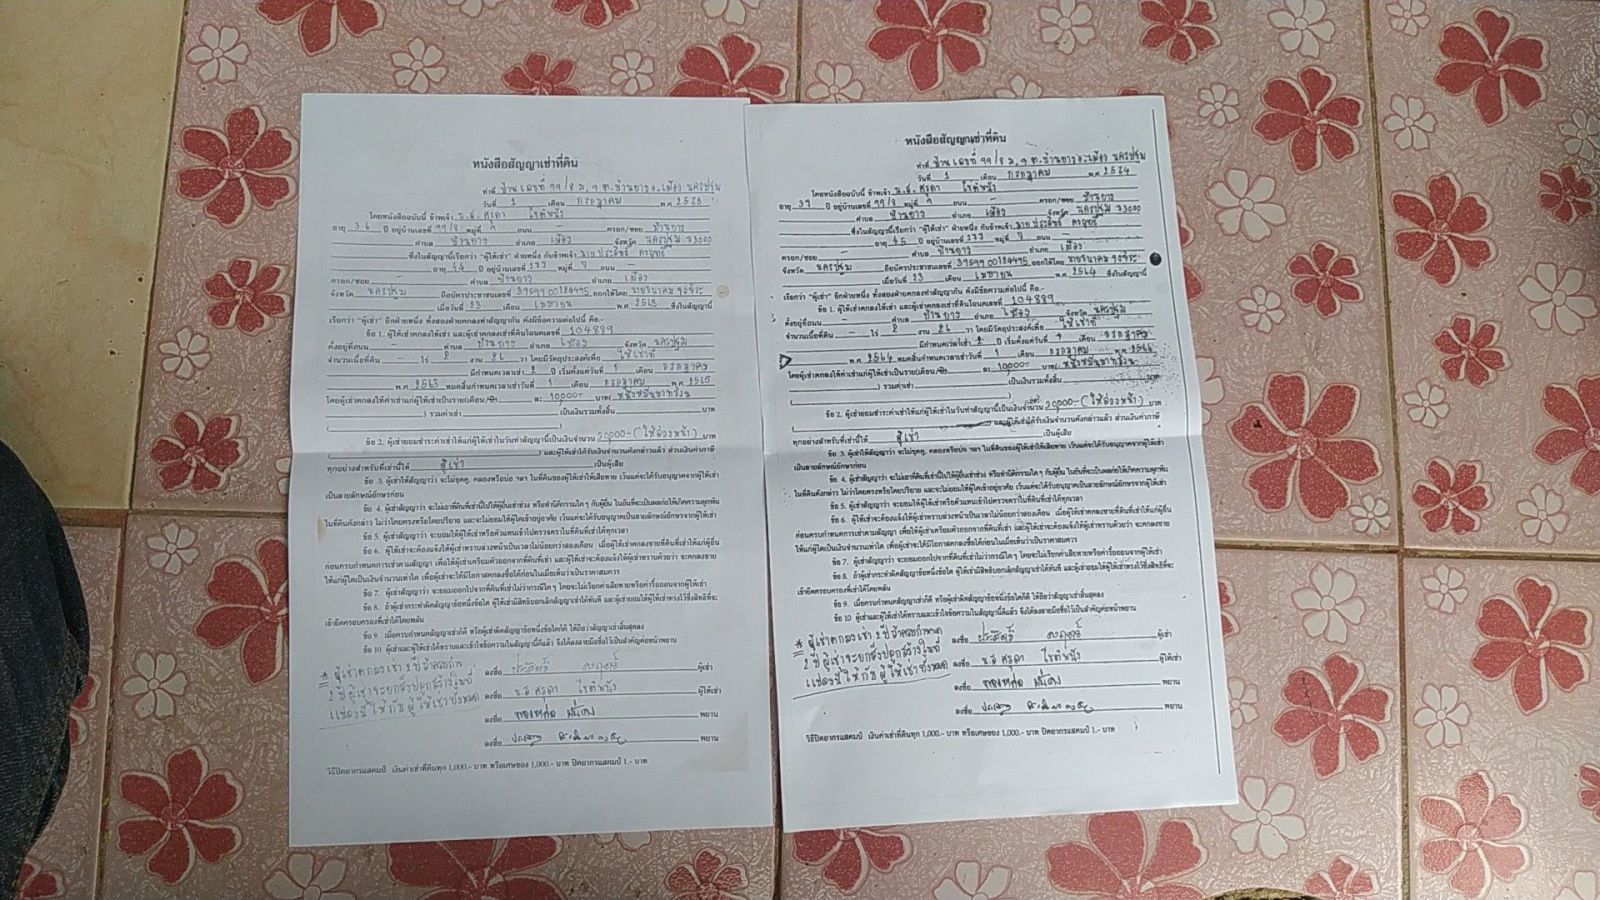 หนังสือสัญญาเช่าที่ดิน
ทำที่ บ้านเลขที่ 99/8 ม.9 ต.บ้านยาง อ.เมือง นครปฐม
วันที่ 1 เดือน กรกฎาคม พ.ศ 2563
โดยหนังสือฉบับนี้ ข้าพเจ้า น.ส. ศรุดา
อายุ 36 ปี อยู่บ้านเลขที่ 99/8 หมู่ที่ 9 ถนน - ตรอก/ซอย บ้านยาง
ตำบล บ้านยาง อำเภอ เมือง จังหวัด นครปฐม 73000
ซึ่งในสัญญานี้เรียกว่า "ผู้ให้เช่า" ฝ่ายหนึ่ง กับข้าพเจ้า นาย ประสิทธิ์
อายุ 44 ปี อยู่บ้านเลขที่ 177 หมู่ที่ ถนน -
ตรอก/ซอย - ตำบล บ้านยาง อำเภอ เมือง
จังหวัด นครปฐม ถือบัตรประชาชนเลขที่ 3959900124495 ออกให้โดย
เมื่อวันที่ 23 เดือน เมษายน พ.ศ 2563 ซึ่งในสัญญานี้
เรียกว่า "ผู้เช่า" อีกฝ่ายหนึ่ง ทั้งสองฝ่ายตกลงทำสัญญากัน ดังมีข้อความต่อไปนี้ คือ.-
ข้อ 1. ผู้ให้เช่าตกลงให้เช่า และผู้เช่าตกลงเช่าที่ดินโฉนดเลขที่ 104889
ตั้งอยู่ที่ถนน - ตำบล บ้านยาง อำเภอ เมือง จังหวัด นครปฐม
จำนวนเนื้อที่ดิน - ไร่ 2 งาน 26 วา โดยมีวัตถุประสงค์เพื่อ ใช้เช่าที่
มีกำหนดเวลาเช่า 2 ปี เริ่มตั้งแต่วันที่ 1 เดือน กรกฎาคม
พ.ศ 2563 หมดสิ้นกำหนดเวลาเช่าวันที่ 1 เดือน กรกฎาคม พ.ศ 2565
โดยผู้เช่าตกลงให้ค่าเช่าแก่ผู้ให้เช่าเป็นราย(เดือน/ปี) ละ 10,000- บาท( หนึ่งหมื่นบาทถ้วน
) รวมค่าเช่า เป็นเงินรวมทั้งสิ้น บาท
( )
ข้อ 2. ผู้เช่ายอมชำระค่าเช่าให้แก่ผู้ให้เช่าในวันทำสัญญานี้เป็นเงินจำนวน 20,000-(ให้ล่วงหน้า) บาท
( ) และผู้เช่าได้รับเงินจำนวนดังกล่าวแล้ว ส่วนเงินค่าภาษี
ทุกอย่างสำหรับที่เช่านี้ให้ ผู้เช่า เป็นผู้เสีย
ข้อ 3. ผู้เช่าให้สัญญาว่า จะไม่ขุดคู, คลองหรือบ่อ ฯลฯ ในที่ดินของผู้ให้เช่าให้เสียหาย เว้นแต่จะได้รับอนุญาตจากผู้ให้เช่า
เป็นลายลักษณ์อักษรก่อน
ข้อ 4. ผู้เช่าสัญญาว่า จะไม่เอาที่ดินที่เช่านี้ไปให้ผู้อื่นเช่าช่วง หรือทำนิติกรรมใดๆ กับผู้อื่น ในอันที่จะเป็นผลก่อให้เกิดความผูกพัน
ในที่ดินดังกล่าว ไม่ว่าโดยตรงหรือโดยปริยาย และจะไม่ยอมให้ผู้ใดเข้าอยู่อาศัย เว้นแต่จะได้รับอนุญาตเป็นลายลักษณ์อักษรจากผู้ให้เช่า
ข้อ 5. ผู้เช่าสัญญาว่า จะยอมให้ผู้ให้เช่าหรือตัวแทนเข้าไปตรวจตราในที่ดินที่เช่าได้ทุกเวลา
ข้อ 6. ผู้ให้เช่าจะต้องแจ้งให้ผู้เช่าทราบล่วงหน้าเป็นเวลาไม่น้อยกว่าสองเดือน เมื่อผู้ให้เช่าตกลงขายที่ดินที่เช่าให้แก่ผู้อื่น
ก่อนครบกำหนดการเช่าตามสัญญา เพื่อให้ผู้เช่าเตรียมตัวออกจากที่ดินที่เช่า และผู้ให้เช่าจะต้องแจ้งให้ผู้เช่าทราบด้วยว่า จะตกลงขาย
ให้แก่ผู้ใดเป็นจำนวนเงินเท่าใด เพื่อผู้เช่าจะได้มีโอกาสตกลงซื้อได้ก่อนในเมื่อเห็นว่าเป็นราคาสมควร
ข้อ 7. ผู้เช่าสัญญาว่า จะยอมออกไปจากที่ดินที่เช่าไม่ว่ากรณีใดๆ โดยจะไม่เรียกค่าเสียหายหรือค่ารื้อถอนจากผู้ให้เช่า
ข้อ 8. ถ้าผู้เช่ากระทำผิดสัญญาข้อหนึ่งข้อใด ผู้ให้เช่ามีสิทธิบอกเลิกสัญญาเช่าได้ทันที และผู้เช่ายอมให้ผู้ให้เช่าทรงไว้ซึ่งสิทธิที่จะ
เข้ายึดครอบครองที่เช่าได้โดยพลัน
ข้อ 9. เมื่อครบกำหนดสัญญาเช่าก็ดี หรือผู้เช่าผิดสัญญาข้อหนึ่งข้อใดก็ดี ให้ถือว่าสัญญาเช่าสิ้นสุดลง
ข้อ 10 ผู้เช่าและผู้ให้เช่าได้ทราบและเข้าใจข้อความในสัญญานี้ดีแล้ว จึงได้ลงลายมือชื่อไว้เป็นสำคัญต่อหน้าพยาน
* ผู้เช่าตกลงเช่า 2 ปี ถ้าครบกำหนด
2 ปี ผู้เช่าจะยกสิ่งปลูกสร้างในที่
แปลงนี้ ให้กับ ผู้ให้เช่าทั้งหมด
ลงชื่อ ประสิทธิ์ ผู้เช่า
ลงชื่อ น.ส ศรุดา ผู้ให้เช่า
ลงชื่อ พยาน
ลงชื่อ พยาน
วิธีปิดอากรแสตมป์ เงินค่าเช่าที่ดินทุก 1,000.- บาท หรือเศษของ 1,000.- บาท ปิดอากรแสตมป์ 1.- บาท
หนังสือสัญญาเช่าที่ดิน
ทำที่ บ้านเลขที่ 99/8 ม.9 ต.บ้านยาง อ.เมือง นครปฐม
วันที่ 1 เดือน กรกฎาคม พ.ศ 2564
โดยหนังสือฉบับนี้ ข้าพเจ้า น.ส. ศรุดา
อายุ 37 ปี อยู่บ้านเลขที่ 99/8 หมู่ที่ 9 ถนน - ตรอก/ซอย บ้านยาง
ตำบล บ้านยาง อำเภอ เมือง จังหวัด นครปฐม 73000
ซึ่งในสัญญานี้เรียกว่า "ผู้ให้เช่า" ฝ่ายหนึ่ง กับข้าพเจ้า นาย ประสิทธิ์
อายุ 45 ปี อยู่บ้านเลขที่ 177 หมู่ที่ ถนน -
ตรอก/ซอย - ตำบล บ้านยาง อำเภอ เมือง
จังหวัด นครปฐม ถือบัตรประชาชนเลขที่ 3959900124495 ออกให้โดย
เมื่อวันที่ 23 เดือน เมษายน พ.ศ 2564 ซึ่งในสัญญานี้
เรียกว่า "ผู้เช่า" อีกฝ่ายหนึ่ง ทั้งสองฝ่ายตกลงทำสัญญากัน ดังมีข้อความต่อไปนี้ คือ.-
ข้อ 1. ผู้ให้เช่าตกลงให้เช่า และผู้เช่าตกลงเช่าที่ดินโฉนดเลขที่ 104889
ตั้งอยู่ที่ถนน - ตำบล บ้านยาง อำเภอ เมือง จังหวัด นครปฐม
จำนวนเนื้อที่ดิน - ไร่ 2 งาน 26 วา โดยมีวัตถุประสงค์เพื่อ ใช้เช่าที่
มีกำหนดเวลาเช่า 2 ปี เริ่มตั้งแต่วันที่ 1 เดือน กรกฎาคม
พ.ศ 2564 หมดสิ้นกำหนดเวลาเช่าวันที่ 1 เดือน กรกฎาคม พ.ศ 2566
โดยผู้เช่าตกลงให้ค่าเช่าแก่ผู้ให้เช่าเป็นราย(เดือน/ปี) ละ 10,000- บาท( หนึ่งหมื่นบาทถ้วน
) รวมค่าเช่า เป็นเงินรวมทั้งสิ้น บาท
( )
ข้อ 2. ผู้เช่ายอมชำระค่าเช่าให้แก่ผู้ให้เช่าในวันทำสัญญานี้เป็นเงินจำนวน 20,000-(ให้ล่วงหน้า) บาท
( ) และผู้เช่าได้รับเงินจำนวนดังกล่าวแล้ว ส่วนเงินค่าภาษี
ทุกอย่างสำหรับที่เช่านี้ให้ ผู้เช่า เป็นผู้เสีย
ข้อ 3. ผู้เช่าให้สัญญาว่า จะไม่ขุดคู, คลองหรือบ่อ ฯลฯ ในที่ดินของผู้ให้เช่าให้เสียหาย เว้นแต่จะได้รับอนุญาตจากผู้ให้เช่า
เป็นลายลักษณ์อักษรก่อน
ข้อ 4. ผู้เช่าสัญญาว่า จะไม่เอาที่ดินที่เช่านี้ไปให้ผู้อื่นเช่าช่วง หรือทำนิติกรรมใดๆ กับผู้อื่น ในอันที่จะเป็นผลก่อให้เกิดความผูกพัน
ในที่ดินดังกล่าว ไม่ว่าโดยตรงหรือโดยปริยาย และจะไม่ยอมให้ผู้ใดเข้าอยู่อาศัย เว้นแต่จะได้รับอนุญาตเป็นลายลักษณ์อักษรจากผู้ให้เช่า
ข้อ 5. ผู้เช่าสัญญาว่า จะยอมให้ผู้ให้เช่าหรือตัวแทนเข้าไปตรวจตราในที่ดินที่เช่าได้ทุกเวลา
ข้อ 6. ผู้ให้เช่าจะต้องแจ้งให้ผู้เช่าทราบล่วงหน้าเป็นเวลาไม่น้อยกว่าสองเดือน เมื่อผู้ให้เช่าตกลงขายที่ดินที่เช่าให้แก่ผู้อื่น
ก่อนครบกำหนดการเช่าตามสัญญา เพื่อให้ผู้เช่าเตรียมตัวออกจากที่ดินที่เช่า และผู้ให้เช่าจะต้องแจ้งให้ผู้เช่าทราบด้วยว่า จะตกลงขาย
ให้แก่ผู้ใดเป็นจำนวนเงินเท่าใด เพื่อผู้เช่าจะได้มีโอกาสตกลงซื้อได้ก่อนในเมื่อเห็นว่าเป็นราคาสมควร
ข้อ 7. ผู้เช่าสัญญาว่า จะยอมออกไปจากที่ดินที่เช่าไม่ว่ากรณีใดๆ โดยจะไม่เรียกค่าเสียหายหรือค่ารื้อถอนจากผู้ให้เช่า
ข้อ 8. ถ้าผู้เช่ากระทำผิดสัญญาข้อหนึ่งข้อใด ผู้ให้เช่ามีสิทธิบอกเลิกสัญญาเช่าได้ทันที และผู้เช่ายอมให้ผู้ให้เช่าทรงไว้ซึ่งสิทธิที่จะ
เข้ายึดครอบครองที่เช่าได้โดยพลัน
ข้อ 9. เมื่อครบกำหนดสัญญาเช่าก็ดี หรือผู้เช่าผิดสัญญาข้อหนึ่งข้อใดก็ดี ให้ถือว่าสัญญาเช่าสิ้นสุดลง
ข้อ 10 ผู้เช่าและผู้ให้เช่าได้ทราบและเข้าใจข้อความในสัญญานี้ดีแล้ว จึงได้ลงลายมือชื่อไว้เป็นสำคัญต่อหน้าพยาน
* ผู้เช่าตกลงเช่า 2 ปี ถ้าครบกำหนด
2 ปี ผู้เช่าจะยกสิ่งปลูกสร้างในที่
แปลงนี้ ให้กับ ผู้ให้เช่าทั้งหมด
ลงชื่อ ประสิทธิ์ ผู้เช่า
ลงชื่อ น.ส ศรุดา ผู้ให้เช่า
ลงชื่อ พยาน
ลงชื่อ พยาน
วิธีปิดอากรแสตมป์ เงินค่าเช่าที่ดินทุก 1,000.- บาท หรือเศษของ 1,000.- บาท ปิดอากรแสตมป์ 1.- บาท